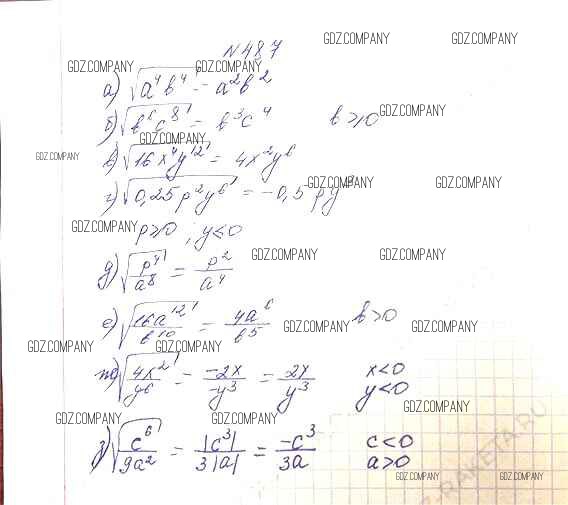 GDZ.COMPANY GDZ.COMPANY
№487
GDZ.COMPANY GDZ.COMPANY
а) √a⁴b⁴ = a²b²
б) √b⁶c⁸ = b³c⁴ b≥0
GDZ.COMPANY
GDZ.COMPANY
GDZ.COMPANY
в) √16x⁴y¹² = 4x²y⁶
GDZ.COMPANY GDZ.COMPANY
г) √0,25p²y⁶ = -0,5py³
GDZ.COMPANY GDZ.COMPANY
p≥0, y≤0
GDZ.COMPANY GDZ.COMPANY
д) √p⁴/a⁸ = p²/a⁴
е) √16a¹²/b¹⁰ = 4a⁶/b⁵ b>0
GDZ.COMPANY GDZ.COMPANY
GDZ.COMPANY GDZ.COMPANY
ж) √4x²/y⁶ = -2x/-y³ = 2x/y³ x<0
y<0
GDZ.COMPANY
GDZ.COMPANY GDZ.COMPANY
з) √c⁶/9a² = |c³|/3|a| = -c³/3a c<0
a>0
GDZ.COMPANY GDZ.COMPANY